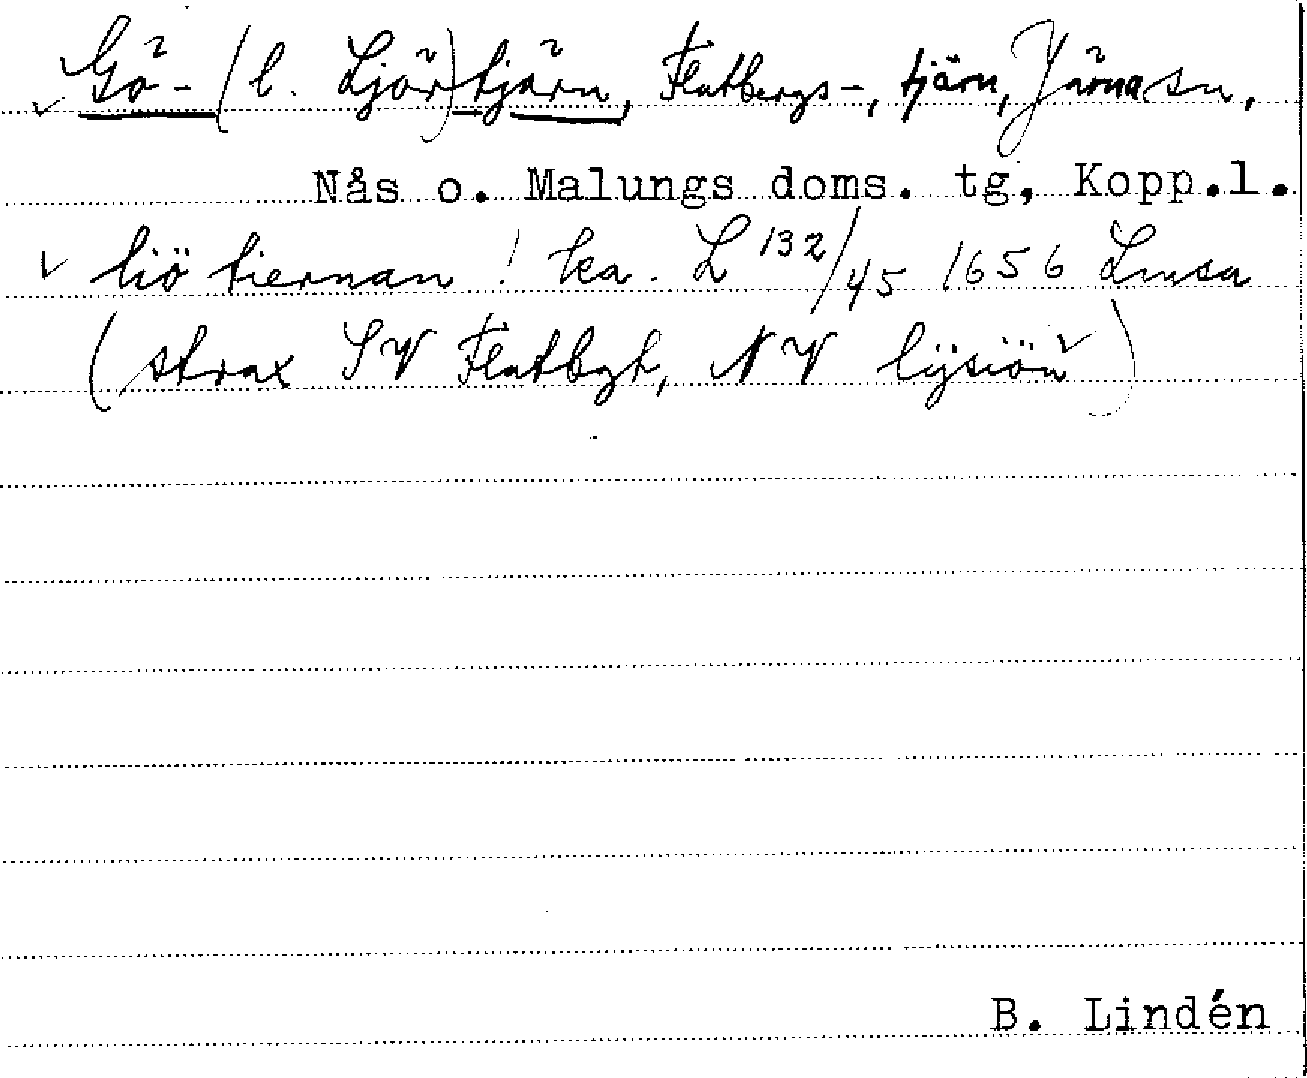 Gö- (l. Ljör)tjärn, Flatbergs-, tjärn, Järna sn,
Nås o. Malungs doms. tg, Kopp.l.
liö tiernan ! ka. L 132/45 1656 Lmsa
(strax SV Flatbgt, NV lÿsiön)
B. Lindén